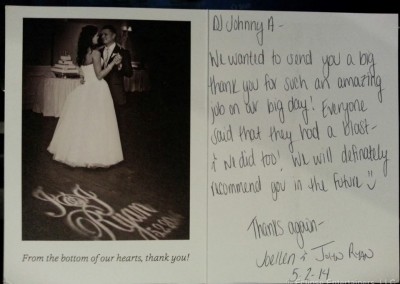 J & J
Ryan
From the bottom of our hearts, thank you!
DJ Johnny A -
We wanted to send you a big
thank you for such an amazing
job on our big day! Everyone
said that they had a blast -
& we did too! We will definately
recommend you in the future
Thanks again -
Joellen & John Ryan
5-2-14